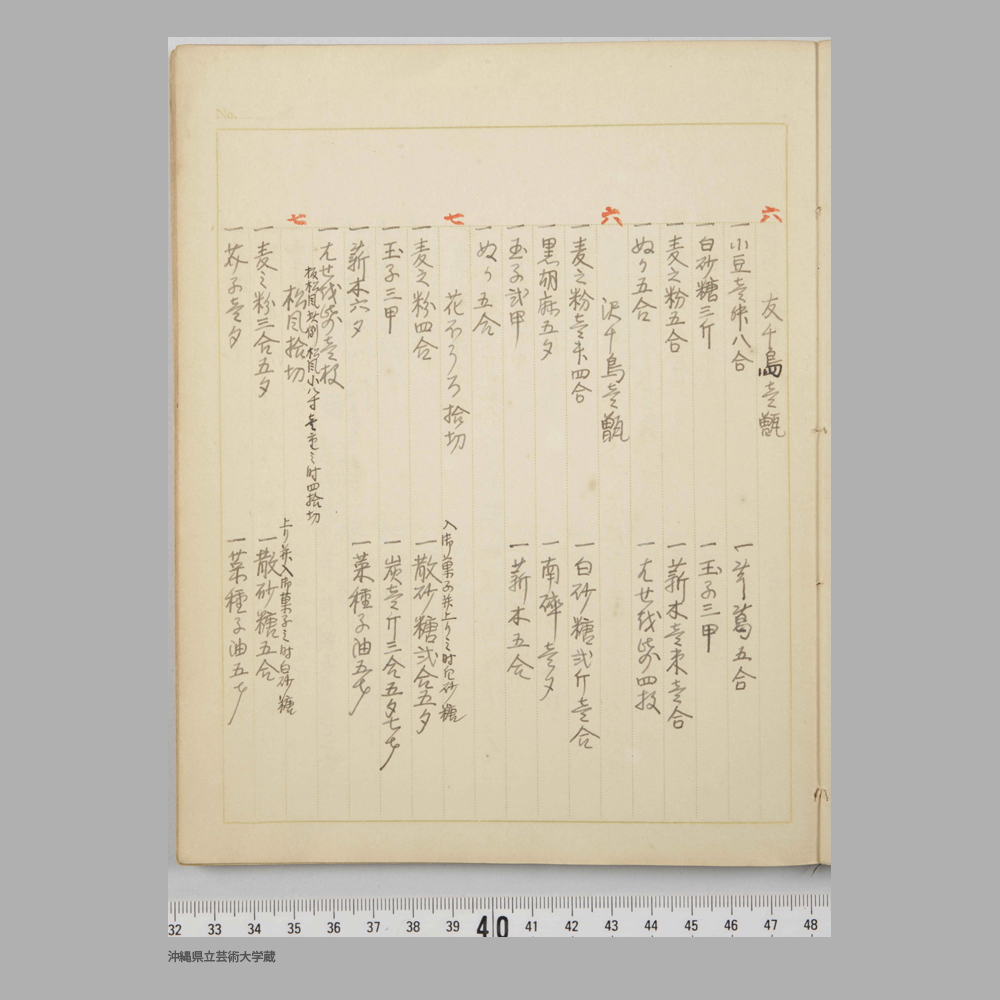 No.
六
友千鳥壱甑
一 小豆壱升八合
一 芋葛五合
一 白砂糖三斤
一 玉子三甲
一 麦之粉五合
一 薪木壱束壱合
一 ぬり五合
一 はせを紫四枚
六
沢千鳥壱甑
一 麦之粉壱升四合
一 白砂糖弐斤壱合
一 黒胡麻五夕
一 南磷壱夕
一 玉子弐甲
一 薪木五合
一 ぬり五合
七
花ぼうろ拾切
入御菓子并上り之時白砂糖
一 麦之粉四合
一 散砂糖弐合五夕
一 玉子三甲
一 炭壱斤三合五夕七才
一 薪木六夕
一 菜種子油五才
一 壱枚
七
松風拾切
板松風故例松風小八寸壱重之時四拾切
上り并入御菓子之時白砂糖
一 麦之粉三合五夕
一 散砂糖五合
一 芥子壱夕
一 菜種子油五才
32 33 34 35 36 37 38 39 40 41 42 43 44 45 46 47 48
沖縄県立芸術大学蔵